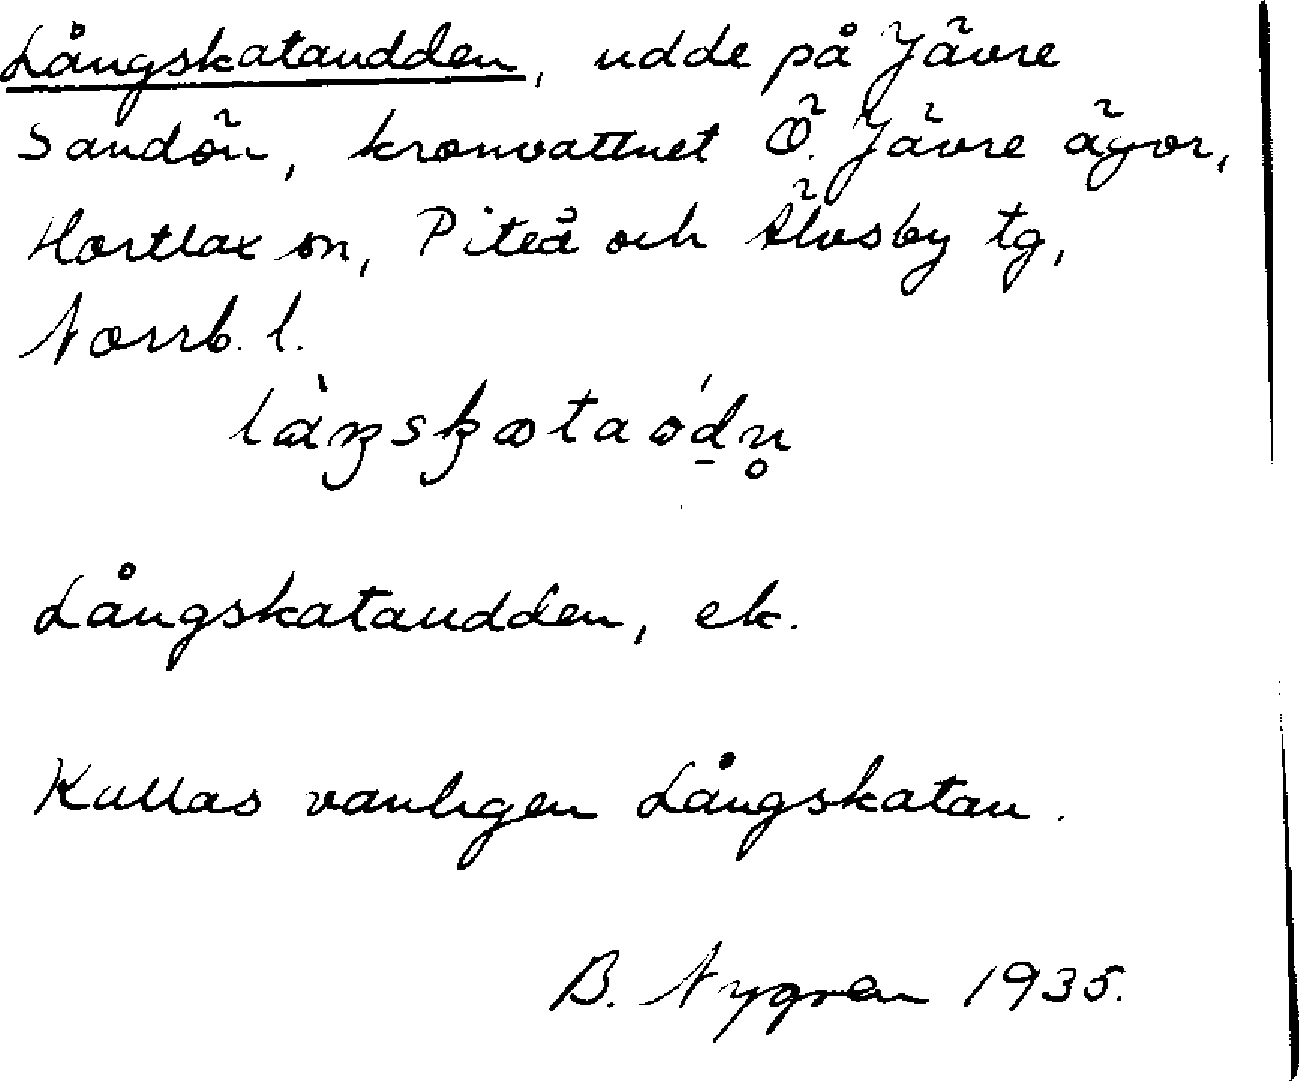 Långskataudden, udde på Jävre
Sandön, kronvattnet Ö. Jävre ägor,
Hortlax sn, Piteå och Älvsby tg,
Norrb. l.
Långskataudden, ek.
Kallas vanligen Långskatan.
B. Nygren 1935.